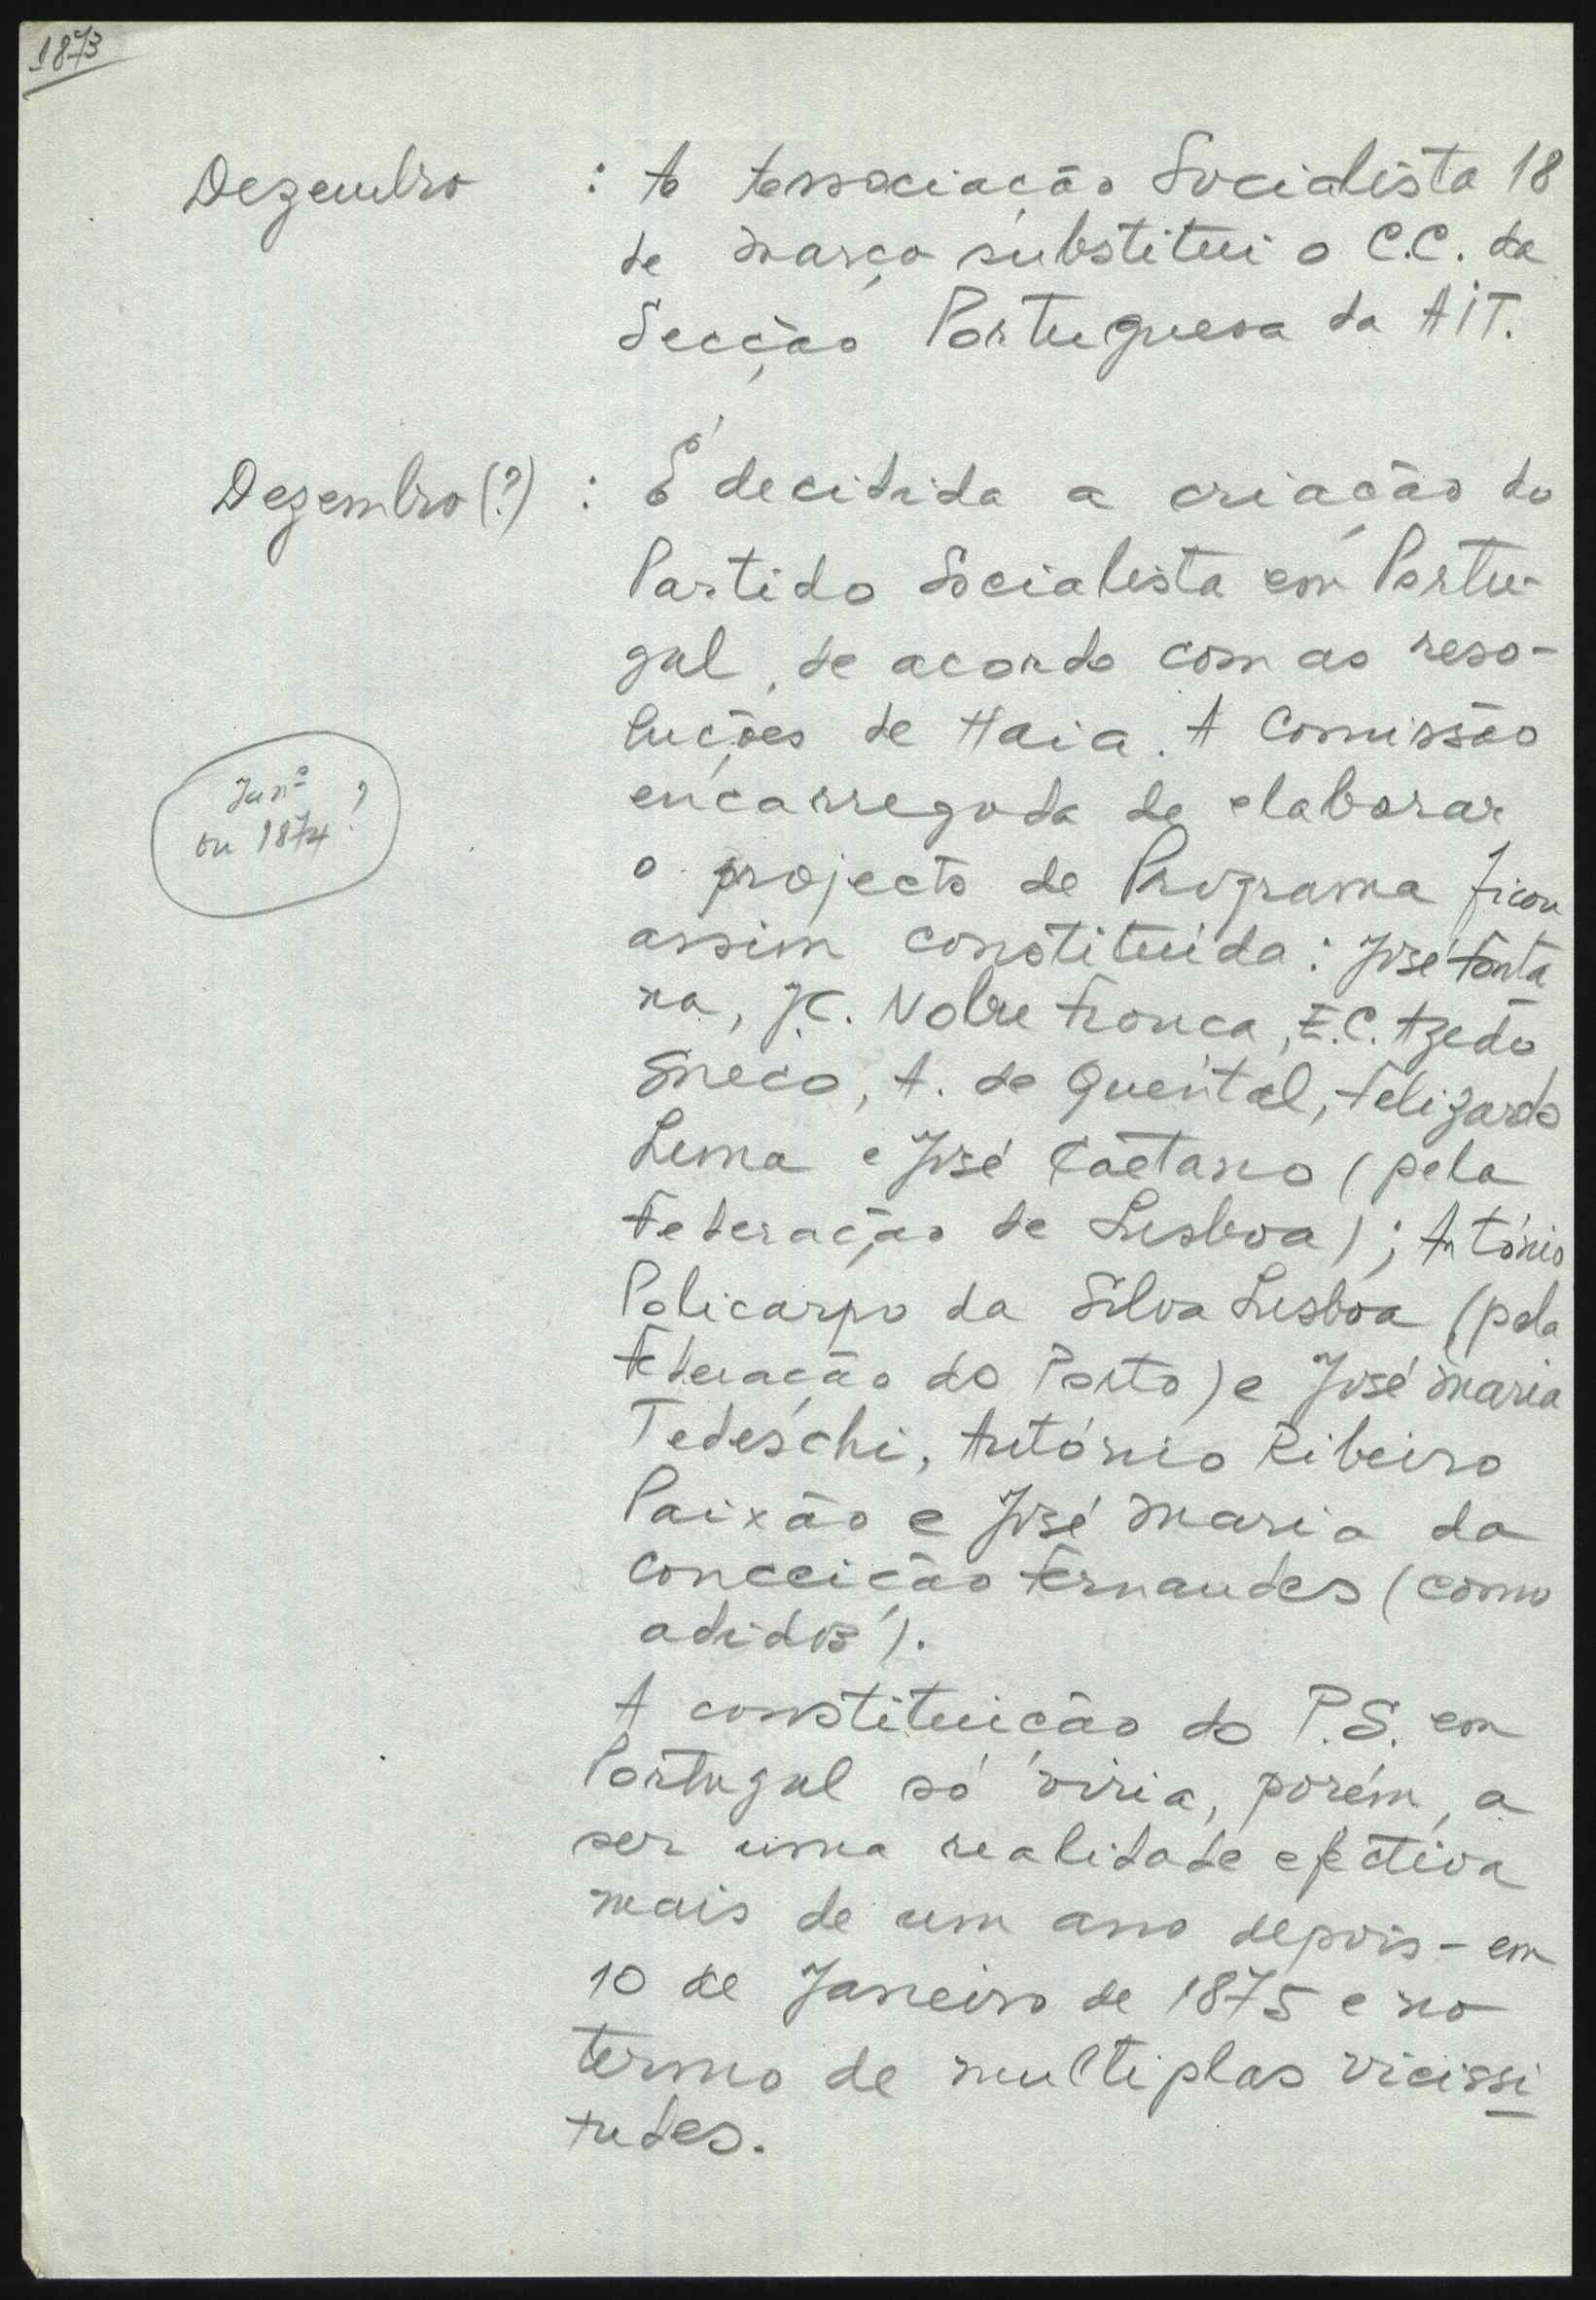 1873
Dezembro : A Associação Socialista 18
de Março substitui o C.C. da
Secção Portuguesa da AIT.
Dezembro (?) : É decidida a criação do
Partido Socialista em Portu-
gal, de acordo com as reso-
luções de Haia. A Comissão
Janº
ou 1874?
encarregada de elaborar
o projecto de Programa ficou
assim constituída: José Fonta
na, J.C. Nobre França, E.C. Azedo
Gneco, A. de Quental, Felizardo
Lima e José Caetano (pela
Federação de Lisboa); António
Policarpo da Silva Lisboa (pela
Federação do Porto) e José Maria
Tedeschi, António Ribeiro
Paixão e José Maria da
Conceição Fernandes (como
adidos).
A constituição do P.S. em
Portugal só viria, porém, a
ser uma realidade efectiva
mais de um ano depois - em
10 de Janeiro de 1875 e no
termo de multiplas vicissi
tudes.